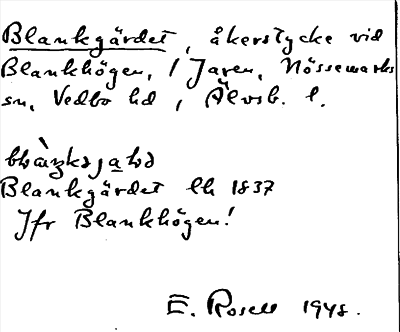 Blankgärdet, åkerstycke vid
Blankhögen, / Jaren, Nössemarks
sn, Vedbo hd, Älvsb. l.
Blankgärdet lh 1837
Jfr Blankhögen!
E. Rosell 1948.